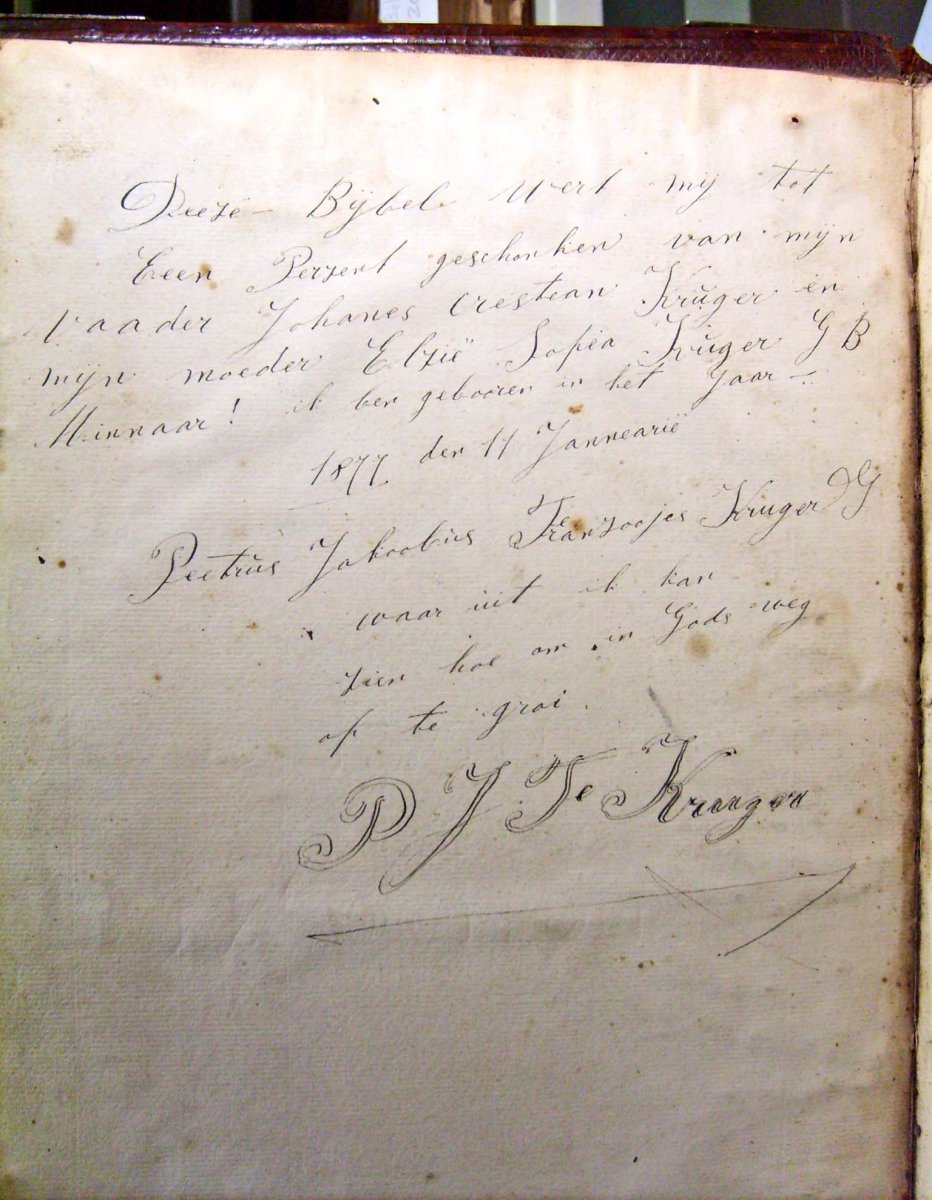 Deezë Bÿbel wert mÿ tot
Eeen Perzent geschonken van mÿn
vaader Johanes Crestean Kruger en
mÿn moeder Elzië Sofëa Kruger G B
Minnaar! ik ben gebooren in het Jaar
1877 den 11 Jannearië
Peetrus Jakoobus Franzoojes Kruger G
waar uit ik kan
zien hoe om in Gods weg
op te groi
P J Fe Kruuger